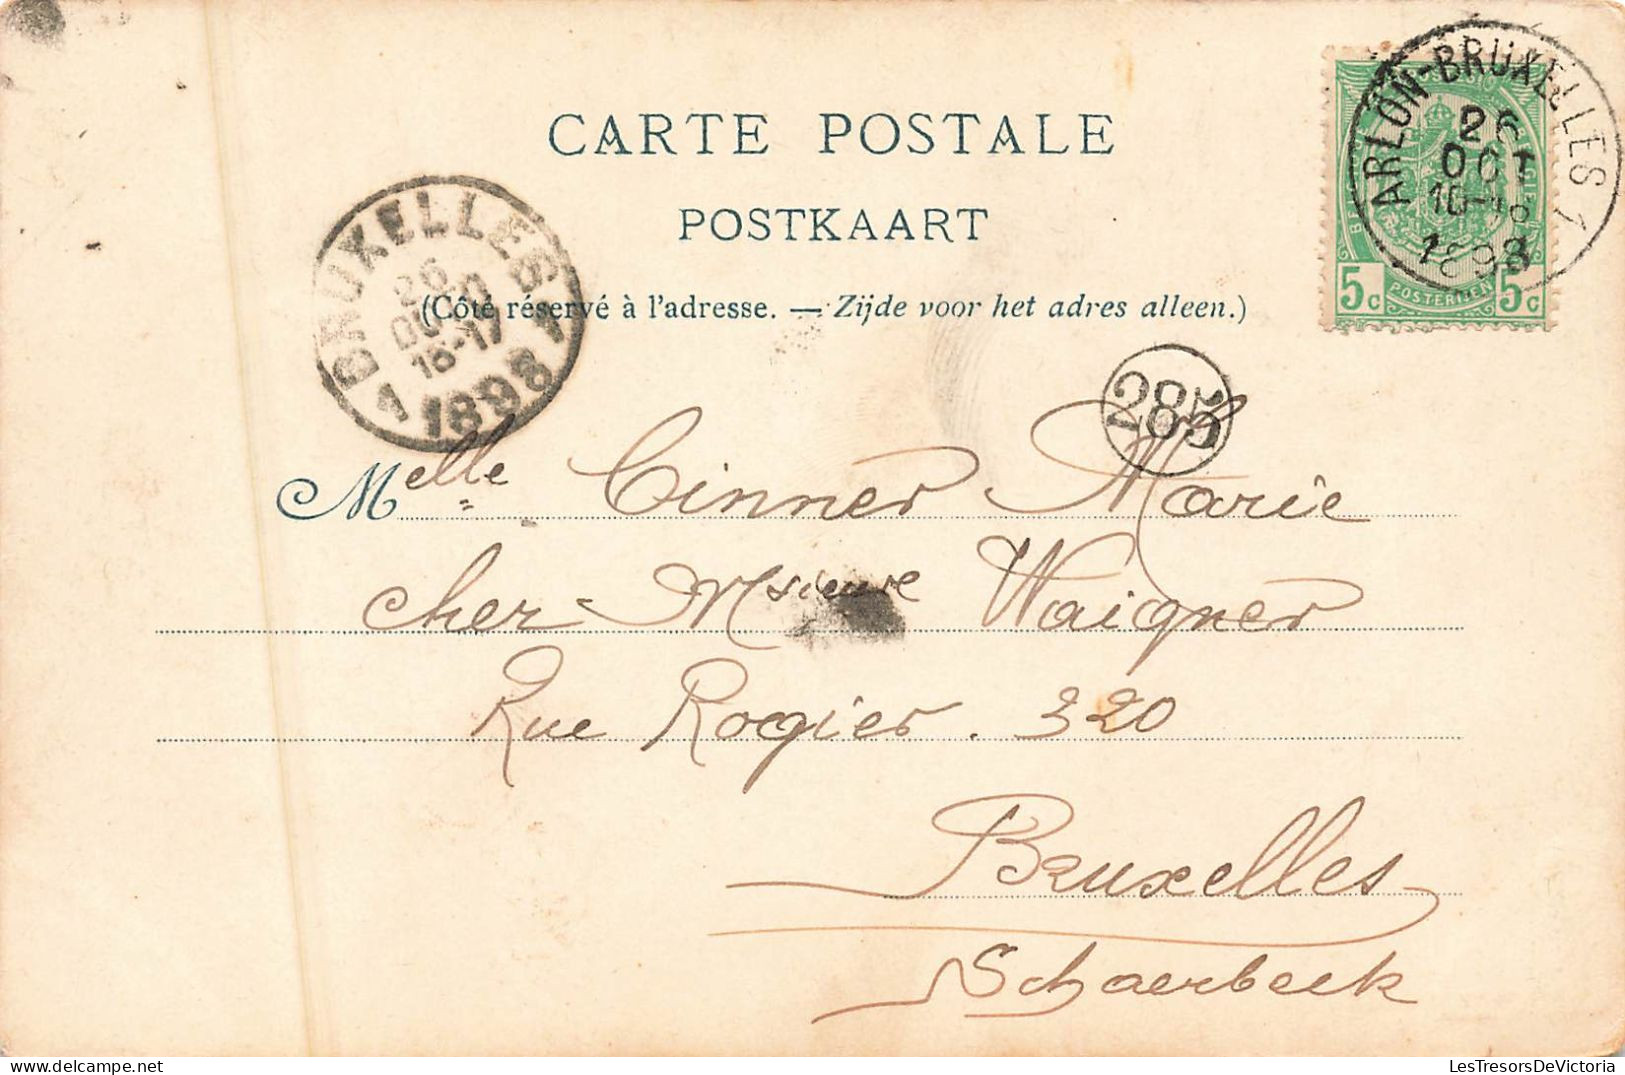 CARTE POSTALE
POSTKAART
(Côté réservé à l'adresse. — Zijde voor het adres alleen.)
ARLON-BRUXELLES 1
26
OCT
1898
5c POSTERIJEN 5c
BRUXELLES
26
16-17
1898
285
Melle Cinner Marie
cher Msieure Waigner
Rue Rogier. 320
Bruxelles
Schaerbeek
LesTresorsDeVictoria